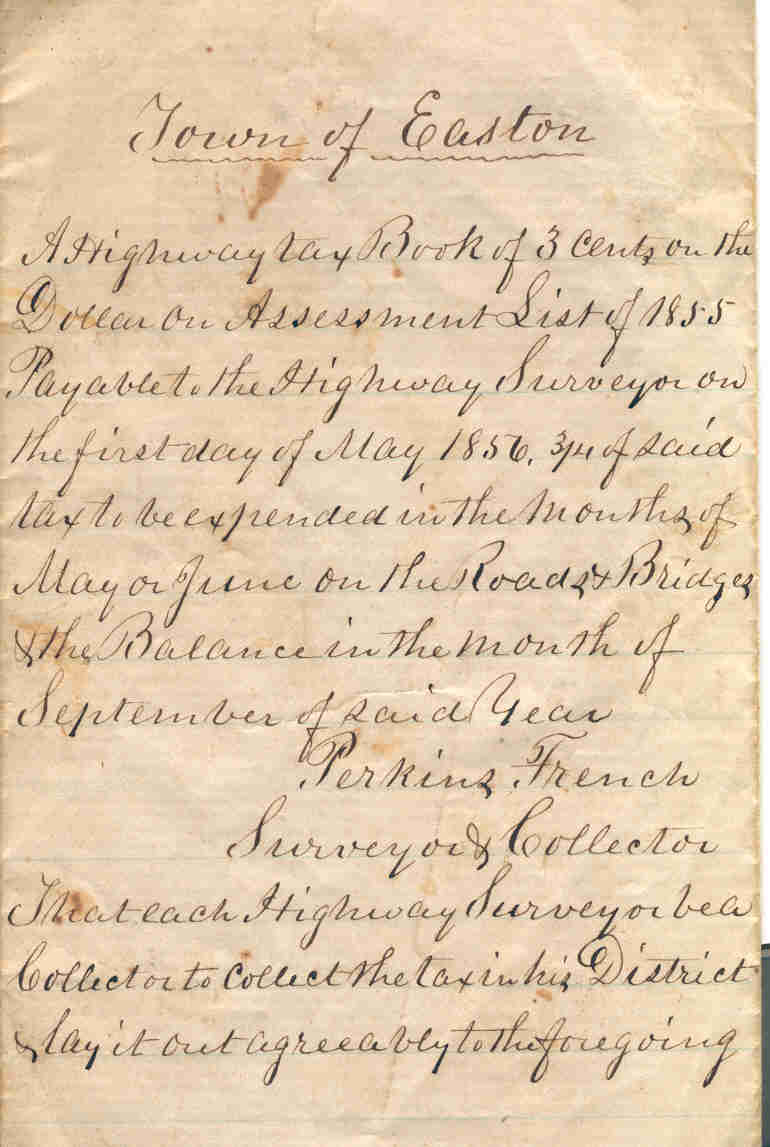 Town of Easton
A Highway tax Book of 3 cents on the
Dollar on Assessment List of 1855
Payable to the Highway Surveyor on
the first day of May 1856. 3/4 of said
tax to be expended in the months of
May or June on the Roads & Bridges
& the Balance in the month of
September of said Year
Perkins French
Surveyor & Collector
That each Highway Surveyor be a
Collector to collect the tax in his District
& lay it out agreeably to the foregoing